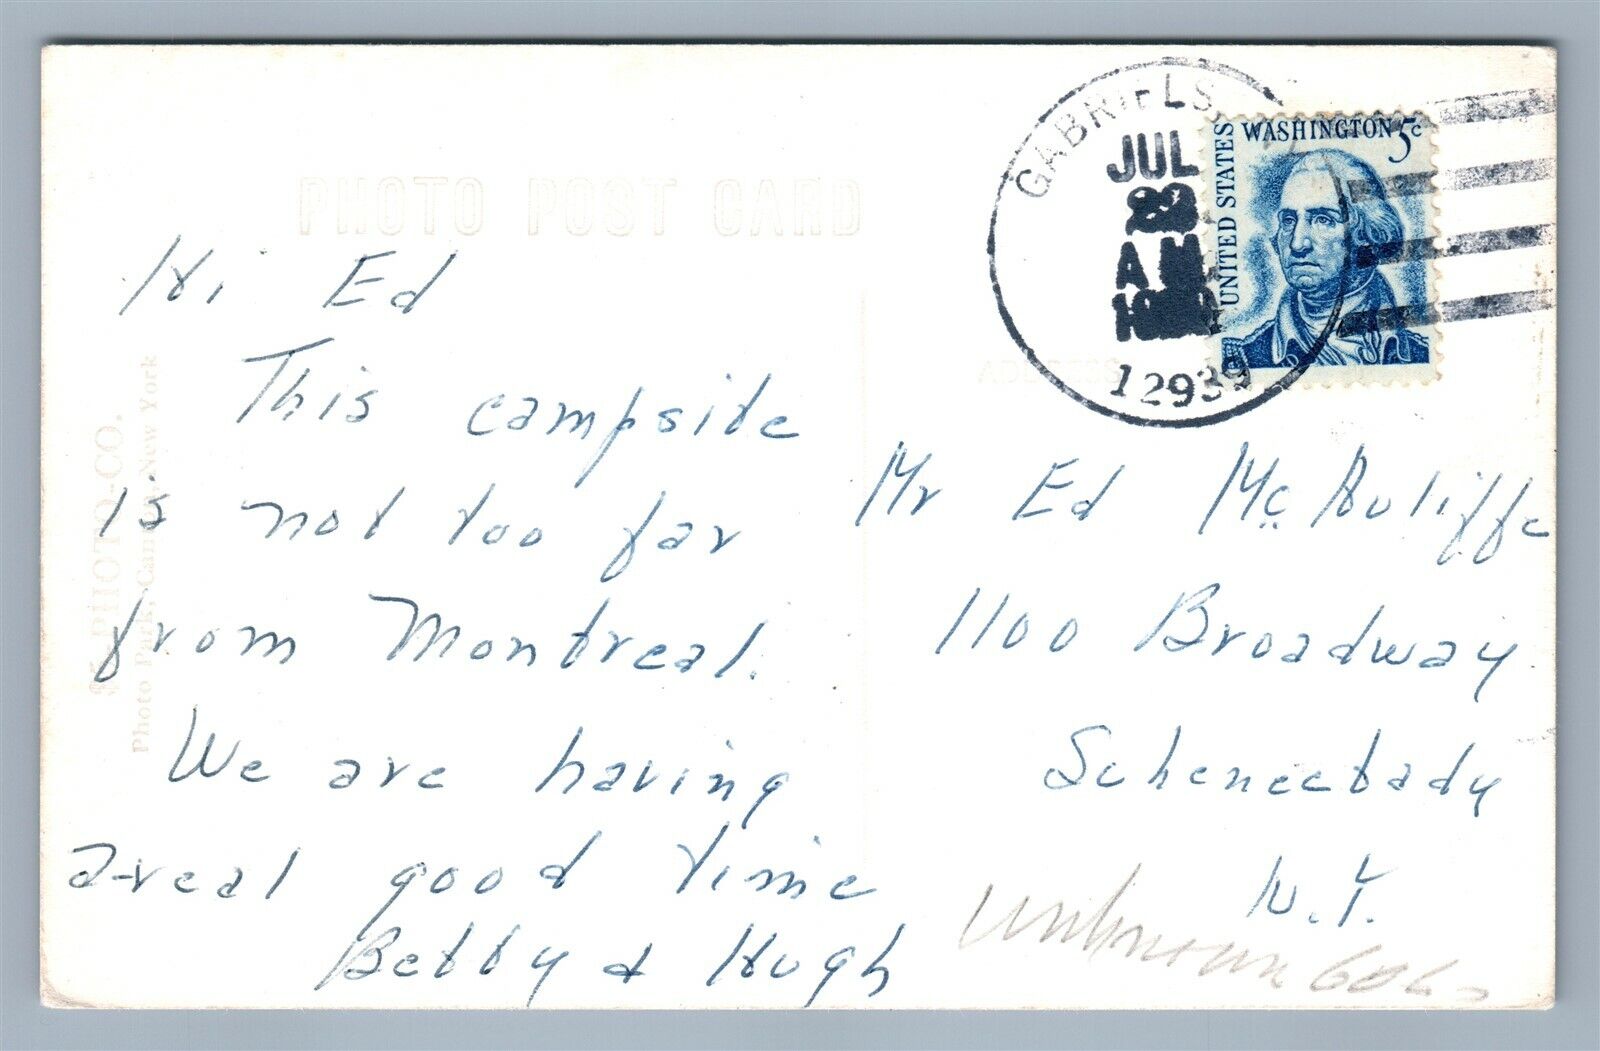 PHOTO POST CARD
Hi Ed
This campside
is not too far
from Montreal.
We are having
a-real good time
Betty & Hugh
PHOTO-CO.
Photo Park, New York
GABRIELS
JUL
A.M.
12939
UNITED STATES
WASHINGTON 5c
ADDRESS
Mr Ed McAuliffe
1100 Broadway
Schenectady
N.Y.
Unknown